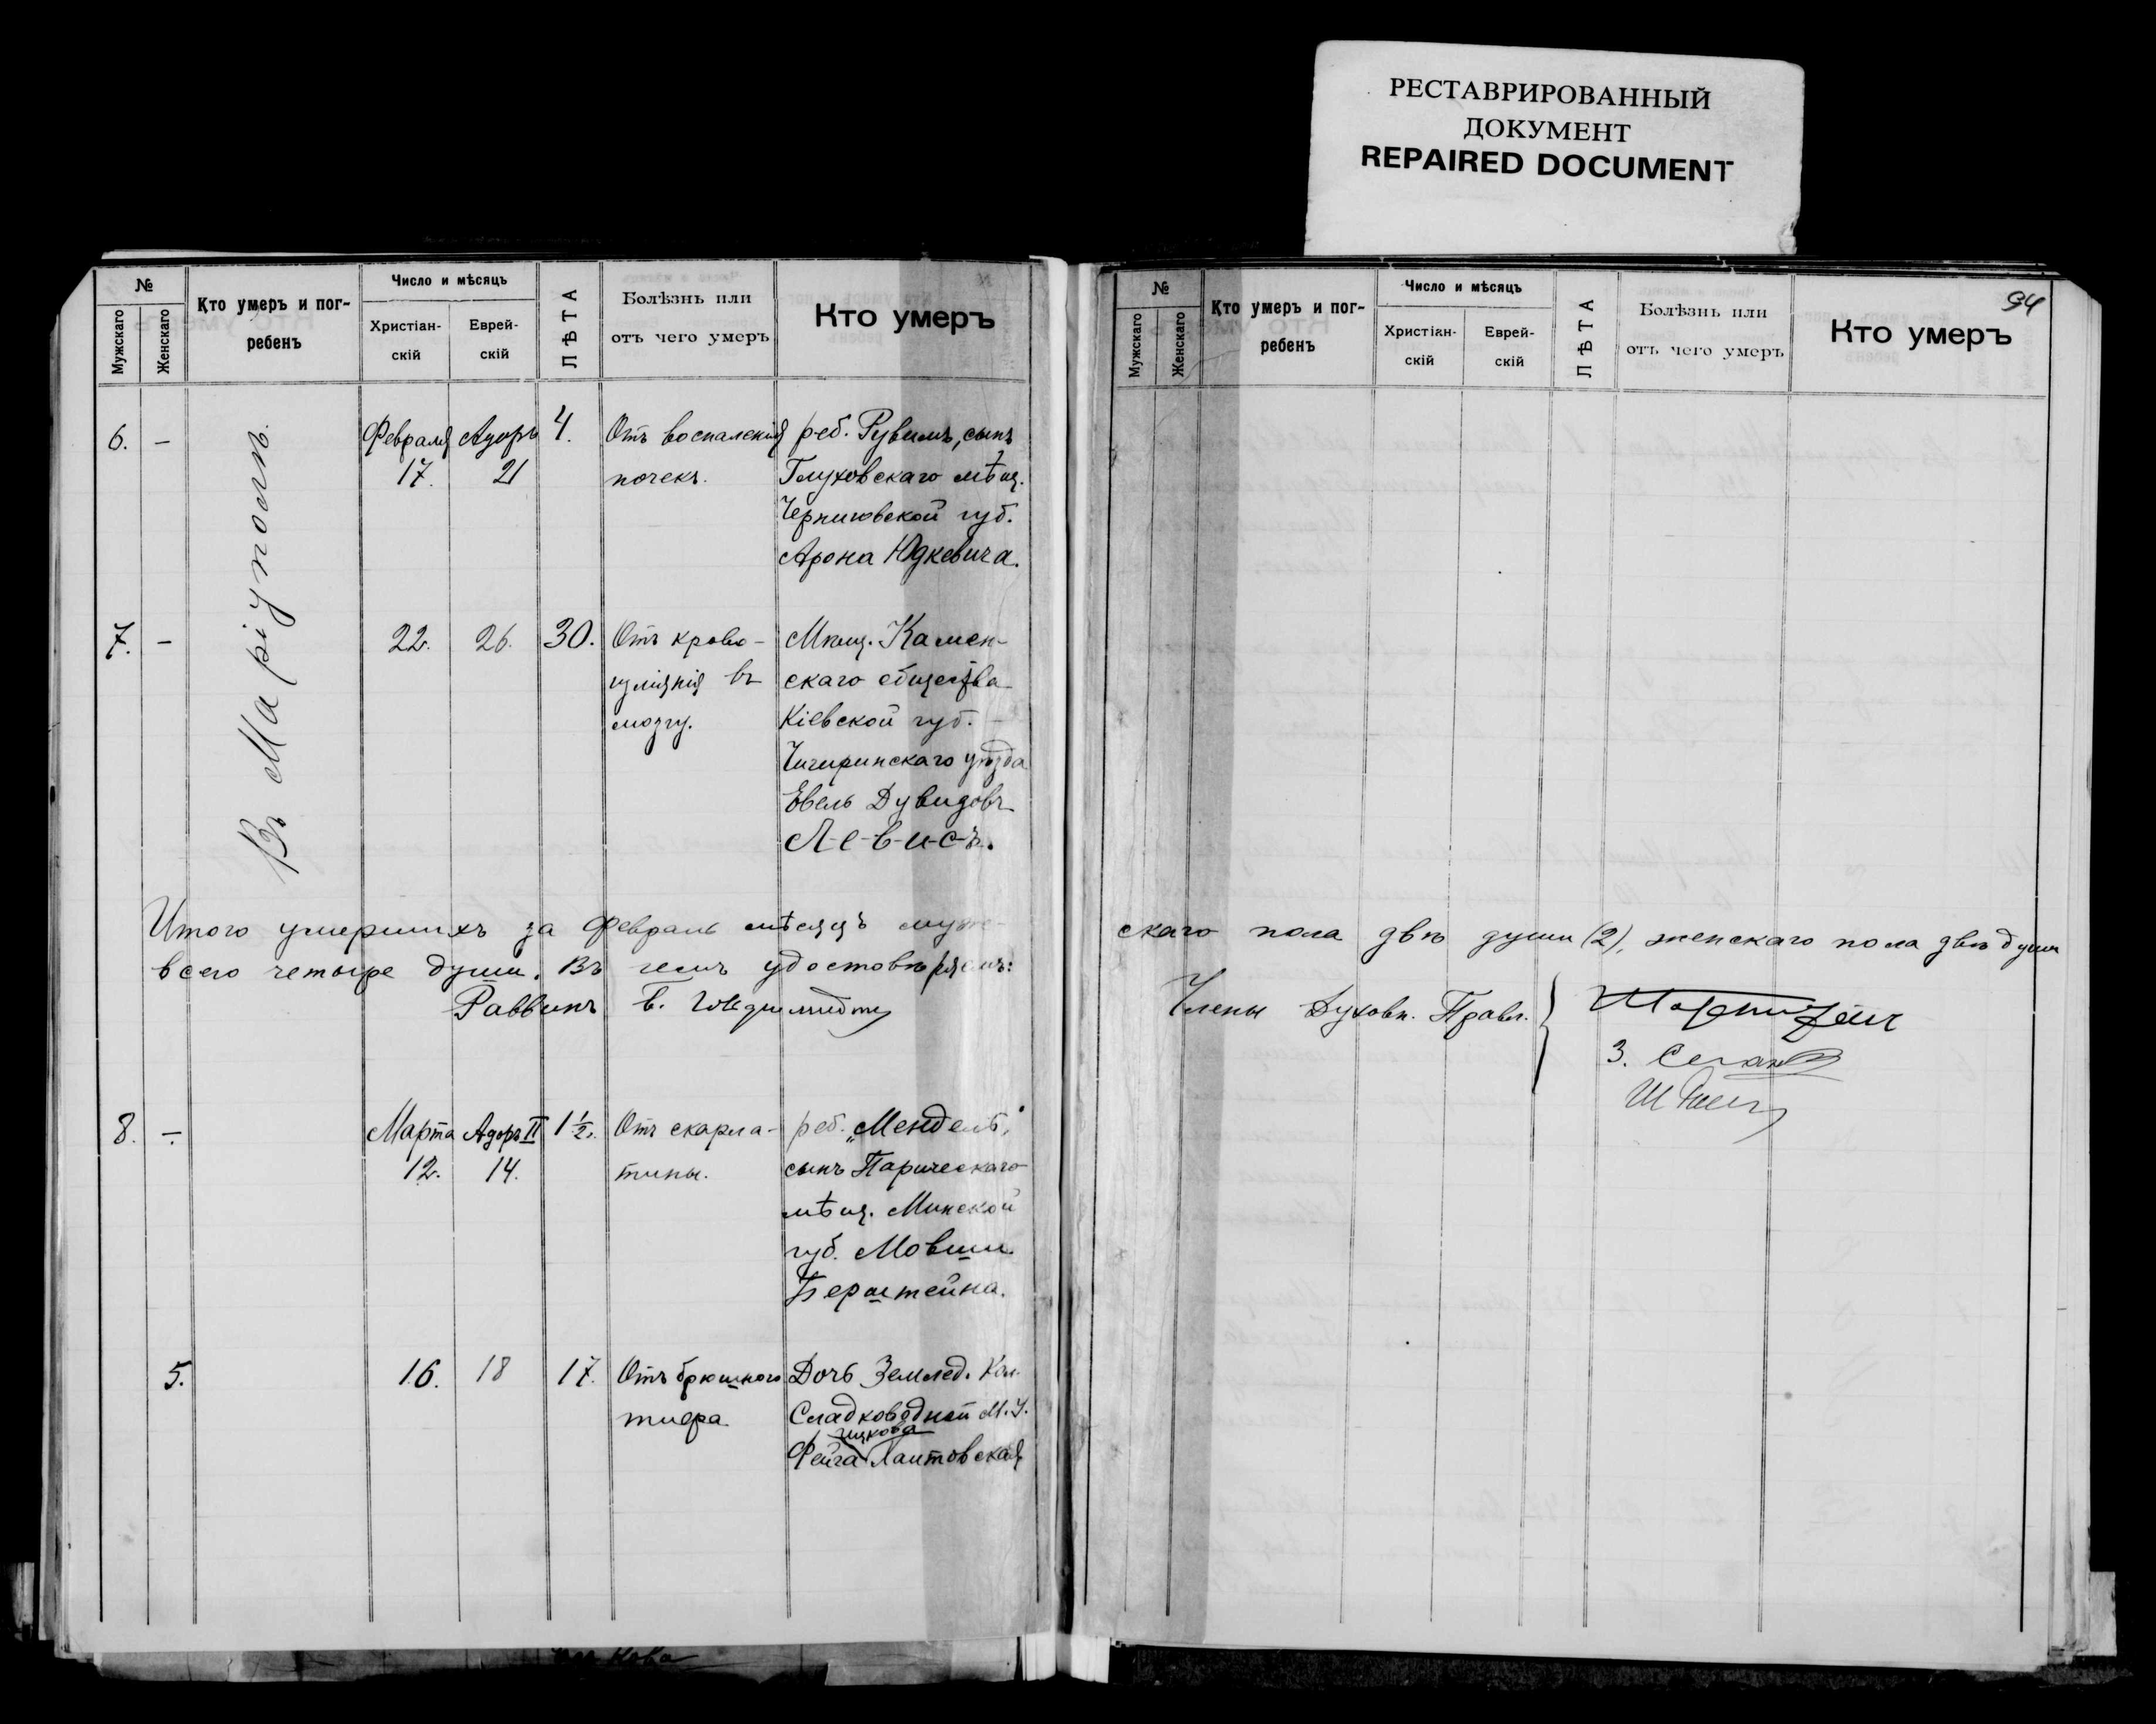 РЕСТАВРИРОВАННЫЙ
ДОКУМЕНТ
REPAIRED DOCUMENT
№
Мужскаго
Женскаго
Кто умеръ и пог-
ребенъ
Число и мѣсяцъ
Христіан-
скій
Еврей-
скій
ЛѢТА
Болѣзнь или
отъ чего умеръ
Кто умеръ
Въ Маріуполѣ.
6. —
Февраля
17.
Адоръ
21
4.
Отъ воспаленія
почекъ.
реб. Рувимъ, сынъ
Глуховскаго мѣщ.
Черниговской губ.
Арона Юдкевича.
7. —
22.
26.
30.
Отъ крово-
изліянія въ
мозгу.
Мѣщ. Камен-
скаго общества
Кіевской губ. —
Чигиринскаго уѣзда
Евель Дувидовъ
Л-е-в-и-с-ъ.
Итого умершихъ за Февраль мѣсяцъ муж-
всего четыре души. Въ чемъ удостовѣряемъ:
Раввинъ
8. —
Марта
12.
Адоръ II
14.
1 1/2.
Отъ скарла-
тины.
реб. „Мендель"
сынъ Паричскаго
мѣщ. Минской
губ. Мовши
Бернштейна.
5.
16.
18
17.
Отъ брюшного
тифа
Дочь Землед. Кол.
Сладководной М. У.
Ицкова
Фейга Лантовская
94
№
Мужскаго
Женскаго
Кто умеръ и пог-
ребенъ
Число и мѣсяцъ
Христіан-
скій
Еврей-
скій
ЛѢТА
Болѣзнь или
отъ чего умеръ
Кто умеръ
скаго пола двѣ души (2), женскаго пола двѣ души
Члены Духовн. Правл.
З.
Ш